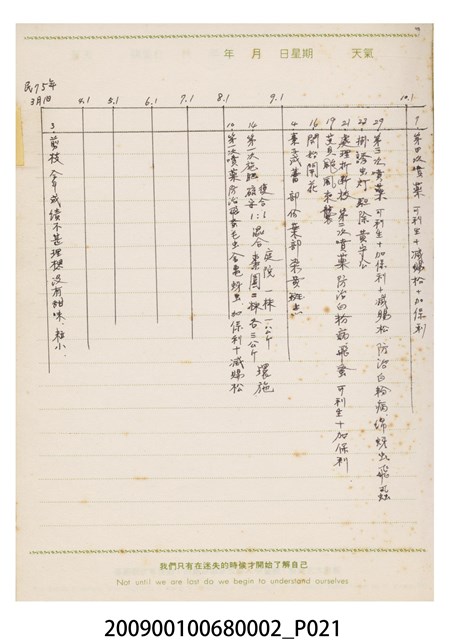 年　月　日星期　天氣
民75年
3月1日
4.1
5.1
6.1
7.1
8.1
9.1
10.1
3 剪枝 今年成績不甚理想 沒有甜味、粒小、
10 第一次噴藥 防治 毛虫 金亀 蚜虫 加保利+滅賜松
14 第一次施肥 硫安1:複合1:混合 庭院一棵一公斤 棗園二棵各三公斤 環施
4 棗子 薔 部份葉部染黃斑点
16 開始開花
19 艾貝颱風來襲
21 處理折斷枝 第二次噴藥 防治白粉病 飛蚤 可利生+加保利
22 掛誘虫灯 驅除黃
29 第三次噴藥 可利生+加保利+滅賜松 防治白粉病、綿蚜虫、飛虱
7 第四次噴藥 可利生+滅賜松+加保利
我們只有在迷失的時候才開始了解自己
Not until we are lost do we begin to understand ourselves
200900100680002_P021